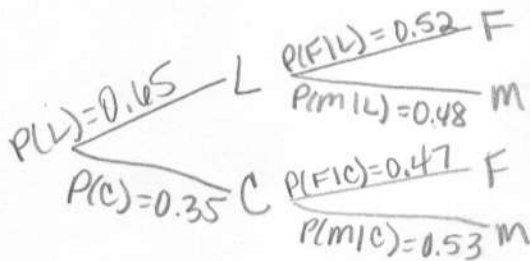 P(F|L)=0.52 F
P(L)=0.65 L
P(m|L)=0.48 m
P(C)=0.35 C P(F|C)=0.47 F
P(m|C)=0.53 m